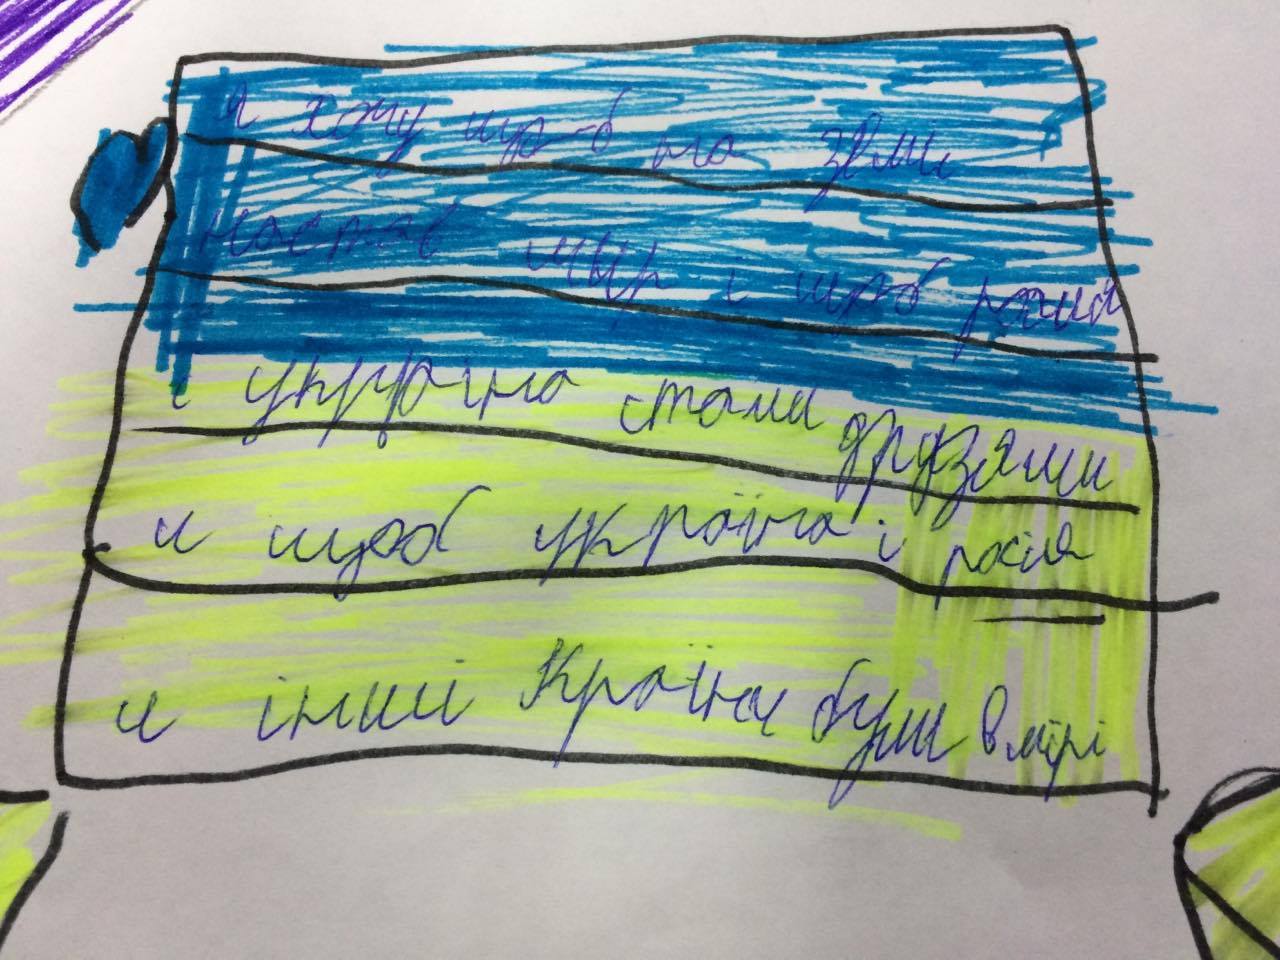 я хочу щоб на землі
настав мир і щоб росия
і україна стали друзями
и щоб україна і росія
и інши Країни були в мірі